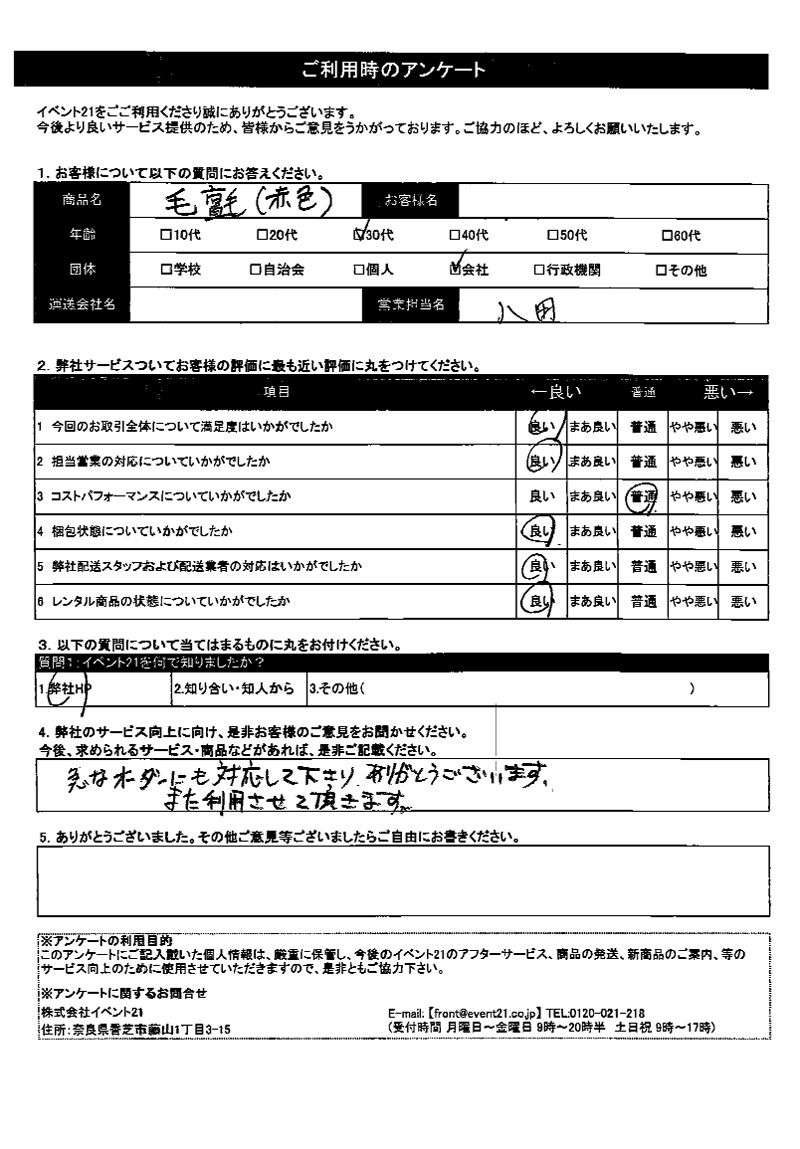 ご利用時のアンケート
イベント21をご利用くださり誠にありがとうございます。
今後より良いサービス提供のため、皆様からご意見をうかがっております。ご協力のほど、よろしくお願いいたします。
1. お客様について以下の質問にお答えください。
商品名 毛氈(赤色) お客様名
年齢 □10代 □20代 ☑30代 □40代 □50代 □60代
団体 □学校 □自治会 □個人 ☑会社 □行政機関 □その他
運送会社名 営業担当名 八田
2. 弊社サービスついてお客様の評価に最も近い評価に丸をつけてください。
項目 ←良い 普通 悪い→
1 今回のお取引全体について満足度はいかがでしたか 良い まあ良い 普通 やや悪い 悪い
2 担当営業の対応についていかがでしたか 良い まあ良い 普通 やや悪い 悪い
3 コストパフォーマンスについていかがでしたか 良い まあ良い 普通 やや悪い 悪い
4 梱包状態についていかがでしたか 良い まあ良い 普通 やや悪い 悪い
5 弊社配送スタッフおよび配送業者の対応はいかがでしたか 良い まあ良い 普通 やや悪い 悪い
6 レンタル商品の状態についていかがでしたか 良い まあ良い 普通 やや悪い 悪い
3. 以下の質問について当てはまるものに丸をお付けください。
質問1:イベント21を何で知りましたか?
1.弊社HP 2.知り合い・知人から 3.その他( )
4. 弊社のサービス向上に向け、是非お客様のご意見をお聞かせください。
今後、求められるサービス・商品などがあれば、是非ご記載ください。
急なオーダーにも対応して下さり ありがとうございます。
また利用させて頂きます。
5. ありがとうございました。その他ご意見等ございましたらご自由にお書きください。
※アンケートの利用目的
このアンケートにご記入戴いた個人情報は、厳重に保管し、今後のイベント21のアフターサービス、商品の発送、新商品のご案内、等の
サービス向上のために使用させていただきますので、是非ともご協力下さい。
※アンケートに関するお問合せ
株式会社イベント21 E-mail:【front@event21.co.jp】 TEL:0120-021-218
住所:奈良県香芝市藤山1丁目3-15 (受付時間 月曜日～金曜日 9時～20時半 土日祝 9時～17時)